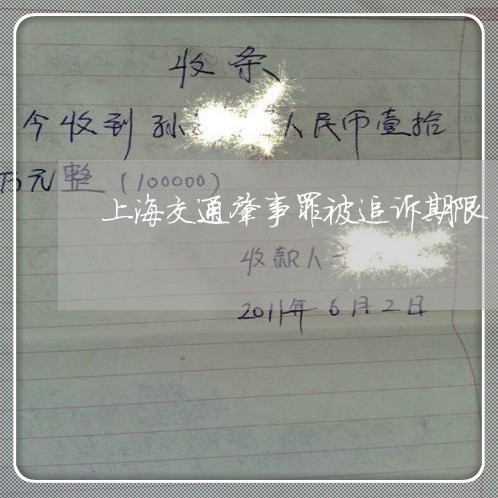 收条
今收到孙人民币壹拾
万元整(100000)
上海交通肇事罪被追诉期限
收款人
2011年6月2日